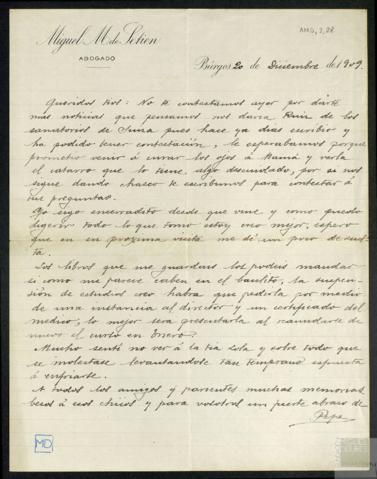 AMG, 2, 28
Miguel M. de Setien
ABOGADO
Búrgos 20 de Diciembre de 1909.
Queridos tios: No te contestamos ayer por darte
mas noticias que pensamos nos daria Ruiz de los
sanatorios de Suiza pues hace ya dias escribio y
ha podido tener contestación, le esperabamos porque
prometio venir á curar los ojos á Mamá y verla
el catarro que lo tiene, algo descuidado, por si nos
sigue dando chasco te escribimos para contestar á
tus preguntas.
Yo sigo encerradito desde que vine y como puedo
digerir todo lo que tomo estoy creo mejor, espero
que en su proxima visita me dé un poco de suel-
ta.
Los libros que me guardais los podeis mandar
si como me parece caben en el baulito, la suspen-
sión de estudios creo habra que pedirla por medio
de una instancia al director y un certificado del
medico, lo mejor sera presentarla al reanudarse de
nuevo el curso en Enero.
Mucho sentí no ver á la tia Lola y sobre todo que
se molestase levantandose tan temprano expuesta
á enfriarse.
A todos los amigos y parientes muchas memorias
besos á esos chicos y para vosotros un fuerte abrazo de
Pepe
MD